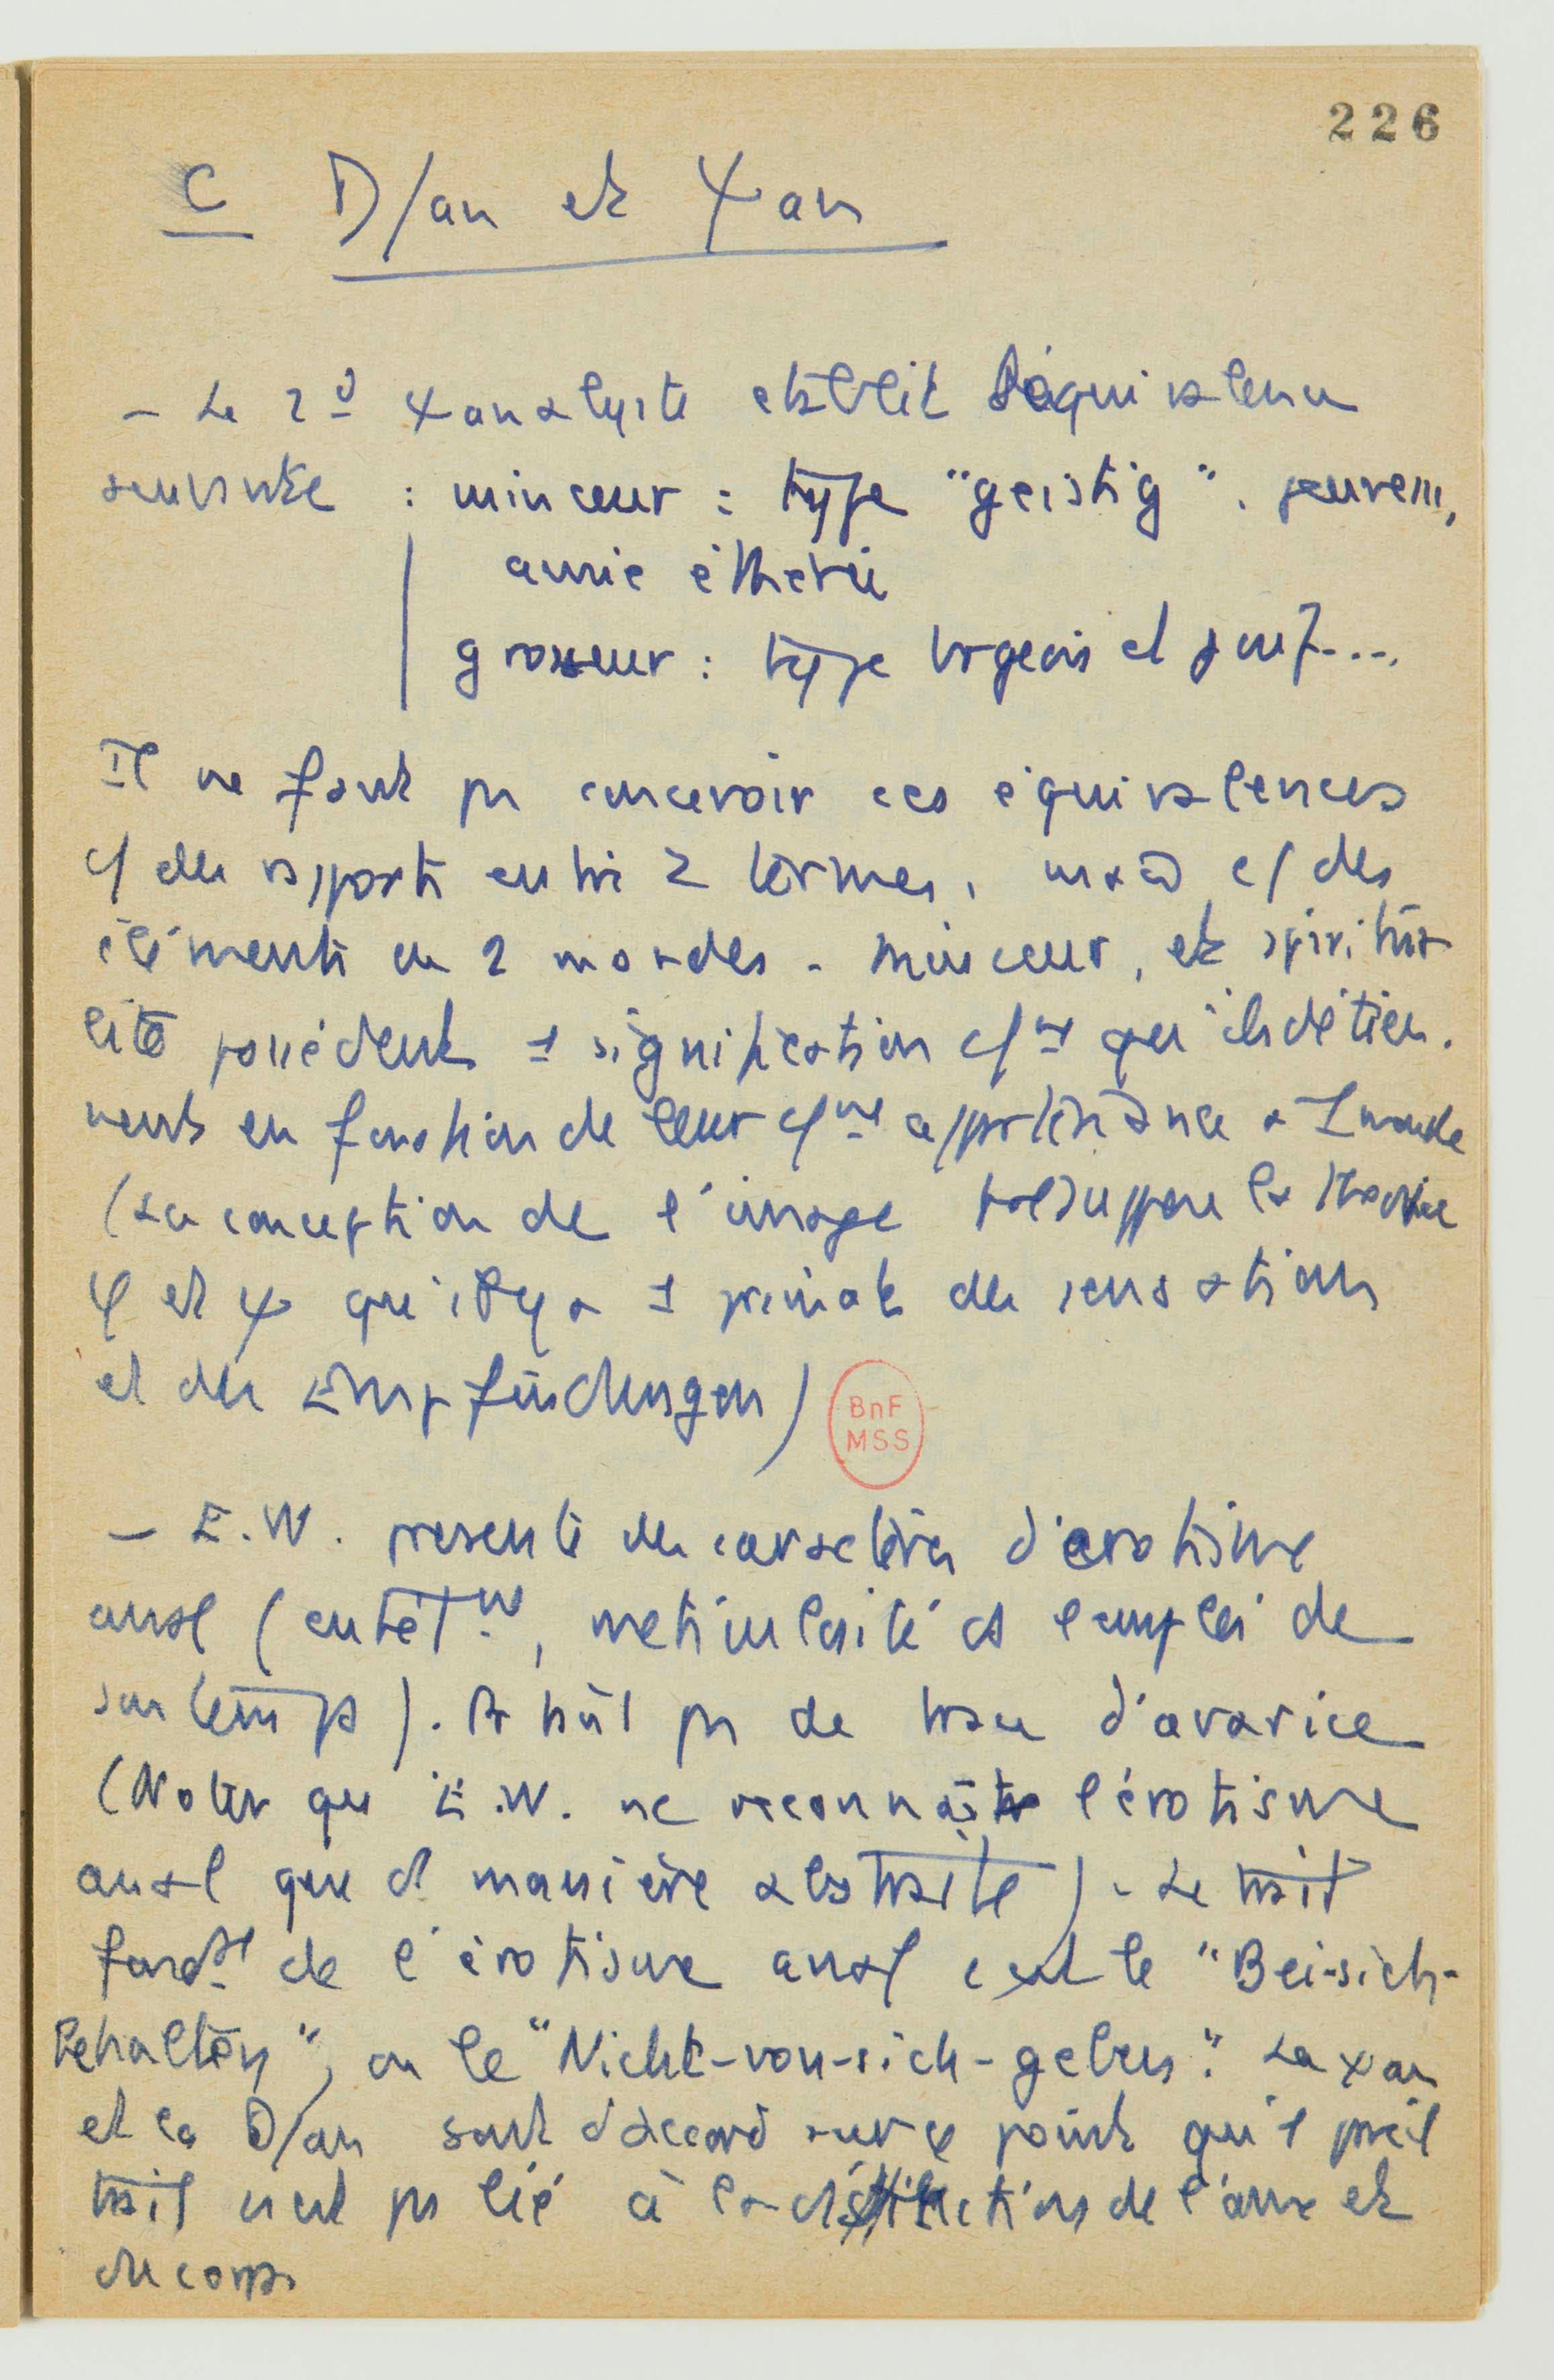 226
C D/an et Ψan
- Le 2d Ψanalyste établit l'équivalence
suivante : minceur : type "geistig".
amie éthérée
grosseur : type brgeois et juif....
Il ne faut ps concevoir ces équivalences
c/ des rapports entre 2 termes, mais c/ des
éléments de 2 mondes. Minceur, et spiritua
lité possèdent 1 signification c/ne qu'ils détien.
nent en fonction de leur c/ne appartenance a 1 monde
(La conception de l'image présuppose la théorie
φ et Ψ qu'il y a 1 primat des sensations
et des Empfindungen)
BnF
MSS
- E.W. présente des caractères d'érotisme
anal (entêtmt, méticulosité ds l'emploi de
son temps). ps de trace d'avarice
(Noter que E.W. ne reconnaît l'érotisme
anal que d manière abstraite). Le trait
fondal de l'érotisme anal c'est le "Bei-sich-
behalten", ou le "Nicht-von-sich-geben". La Ψan
et la D/an sont d'accord sur ce point qu'1 pareil
trait n'est ps lié à la distinction de l'âme et
du corps.